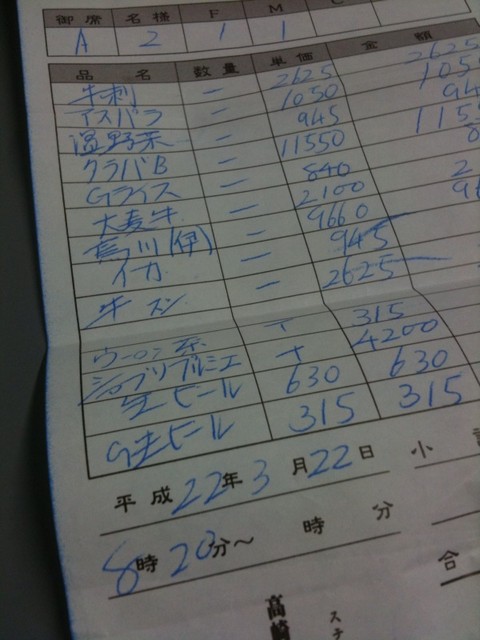 御席 名様 F M C
A 2 1 1
品名 数量 単価 金額
牛刺 一 2625 2625
アスパラ 一 1050 105
温野菜 一 945 94
クラバB 一 11550 1155
Gライス 一 840 8
大麦牛 一 2100 2
鳥川(伊) 一 9660 96
イカ 一 945
牛タン 一 2625
ウーロン茶 315
シャブリプルミエ 4200
生ビール 630 630
G生ビール 315 315
平成22年3月22日 小
8時20分～ 時 分
合
高崎 ステ